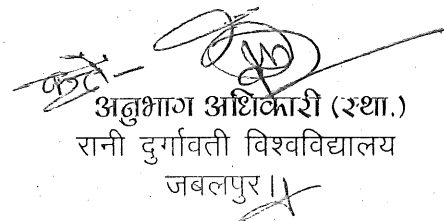 कृते -
अनुभाग अधिकारी (स्था.)
रानी दुर्गावती विश्वविद्यालय
जबलपुर।